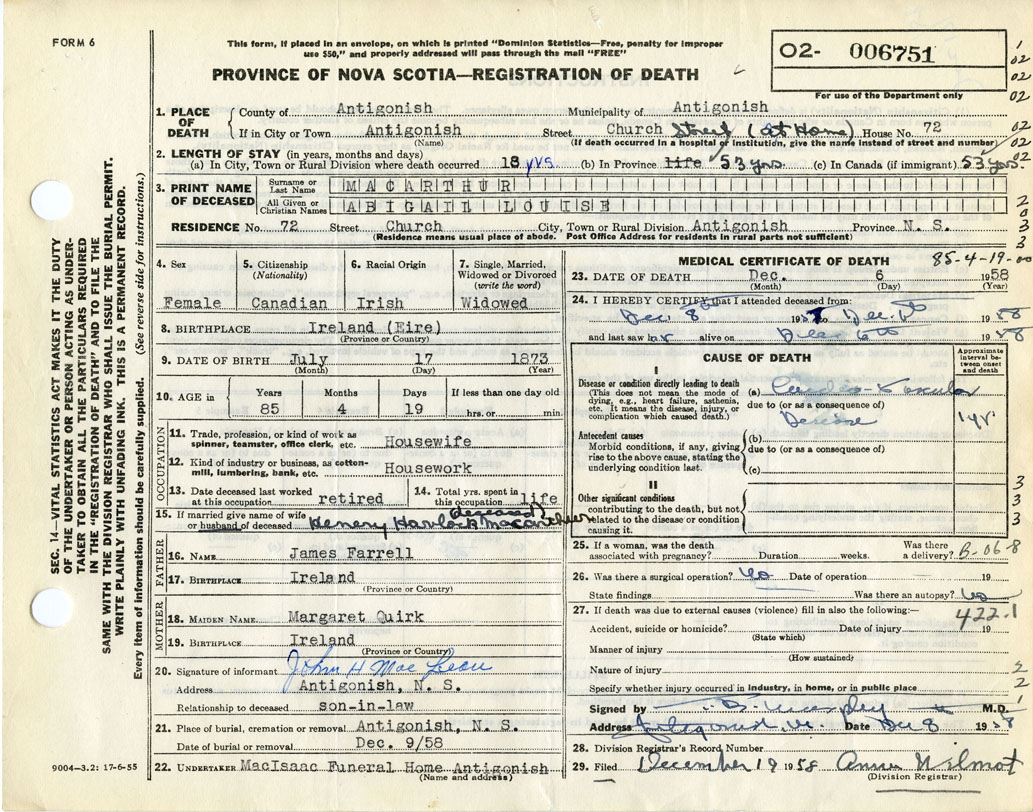 FORM 6
This form, if placed in an envelope, on which is printed "Dominion Statistics—Free, penalty for improper
use $50," and properly addressed will pass through the mail "FREE"
PROVINCE OF NOVA SCOTIA—REGISTRATION OF DEATH
O2- 006751
For use of the Department only
1
02
02
02
02
02
1. PLACE OF DEATH County of Antigonish Municipality of Antigonish
If in City or Town Antigonish Street Church Street (at Home) House No. 72
(Name) (If death occurred in a hospital or institution, give the name instead of street and number)
2. LENGTH OF STAY (in years, months and days)
(a) In City, Town or Rural Division where death occurred 18 yrs. (b) In Province life 53 yrs. (c) In Canada (if immigrant) 53 yrs.
3. PRINT NAME OF DECEASED Surname or Last Name MACARTHUR
All Given or Christian Names ABIGAIL LOUISE
RESIDENCE No. 72 Street Church City, Town or Rural Division Antigonish Province N. S.
(Residence means usual place of abode. Post Office Address for residents in rural parts not sufficient)
4. Sex Female
5. Citizenship (Nationality) Canadian
6. Racial Origin Irish
7. Single, Married, Widowed or Divorced (write the word) Widowed
8. BIRTHPLACE Ireland (Eire)
(Province or Country)
9. DATE OF BIRTH July 17 1873
(Month) (Day) (Year)
10. AGE in Years Months Days If less than one day old
85 4 19 hrs. or min.
OCCUPATION
11. Trade, profession, or kind of work as spinner, teamster, office clerk, etc. Housewife
12. Kind of industry or business, as cotton-mill, lumbering, bank, etc. Housework
13. Date deceased last worked at this occupation retired
14. Total yrs. spent in this occupation life
15. If married give name of wife or husband of deceased Henery Havlock Macarthur (deceased)
FATHER
16. NAME James Farrell
17. BIRTHPLACE Ireland
(Province or Country)
MOTHER
18. MAIDEN NAME Margaret Quirk
19. BIRTHPLACE Ireland
(Province or Country)
20. Signature of informant John H Mac Lean
Address Antigonish, N. S.
Relationship to deceased son-in-law
21. Place of burial, cremation or removal Antigonish, N. S.
Date of burial or removal Dec. 9/58
22. UNDERTAKER MacIsaac Funeral Home Antigonish
(Name and address)
MEDICAL CERTIFICATE OF DEATH 85-4-19-00
23. DATE OF DEATH Dec. 6 1958
(Month) (Day) (Year)
24. I HEREBY CERTIFY that I attended deceased from:
Dec. 8th 195 19 58
and last saw her alive on 19 58
CAUSE OF DEATH
Approximate interval between onset and death
I
Disease or condition directly leading to death (a) Cardio-Vascular
(This does not mean the mode of dying, e.g., heart failure, asthenia, etc. It means the disease, injury, or complication which caused death.)
due to (or as a consequence of)
Disease 1 yr
Antecedent causes (b)
Morbid conditions, if any, giving rise to the above cause, stating the underlying condition last.
due to (or as a consequence of)
(c)
II
Other significant conditions
contributing to the death, but not related to the disease or condition causing it.
3
3
3
25. If a woman, was the death associated with pregnancy? Duration weeks. Was there a delivery? B-06-8
26. Was there a surgical operation? No Date of operation 19
State findings Was there an autopsy? No
27. If death was due to external causes (violence) fill in also the following:— 422.1
Accident, suicide or homicide? Date of injury 19
(State which)
Manner of injury
(How sustained)
Nature of injury
Specify whether injury occurred in industry, in home, or in public place
Signed by M.D.
Address Antigonish, N.S. Date Dec 8 1958
28. Division Registrar's Record Number
29. Filed December 19 1958 Anna Wilmot
(Division Registrar)
SEC. 14—VITAL STATISTICS ACT MAKES IT THE DUTY
OF THE UNDERTAKER OR PERSON ACTING AS UNDER-
TAKER TO OBTAIN ALL THE PARTICULARS REQUIRED
IN THE "REGISTRATION OF DEATH" AND TO FILE THE
SAME WITH THE DIVISION REGISTRAR WHO SHALL ISSUE THE BURIAL PERMIT.
WRITE PLAINLY WITH UNFADING INK. THIS IS A PERMANENT RECORD.
Every item of information should be carefully supplied. (See reverse side for instructions.)
9004—3.2: 17-6-55